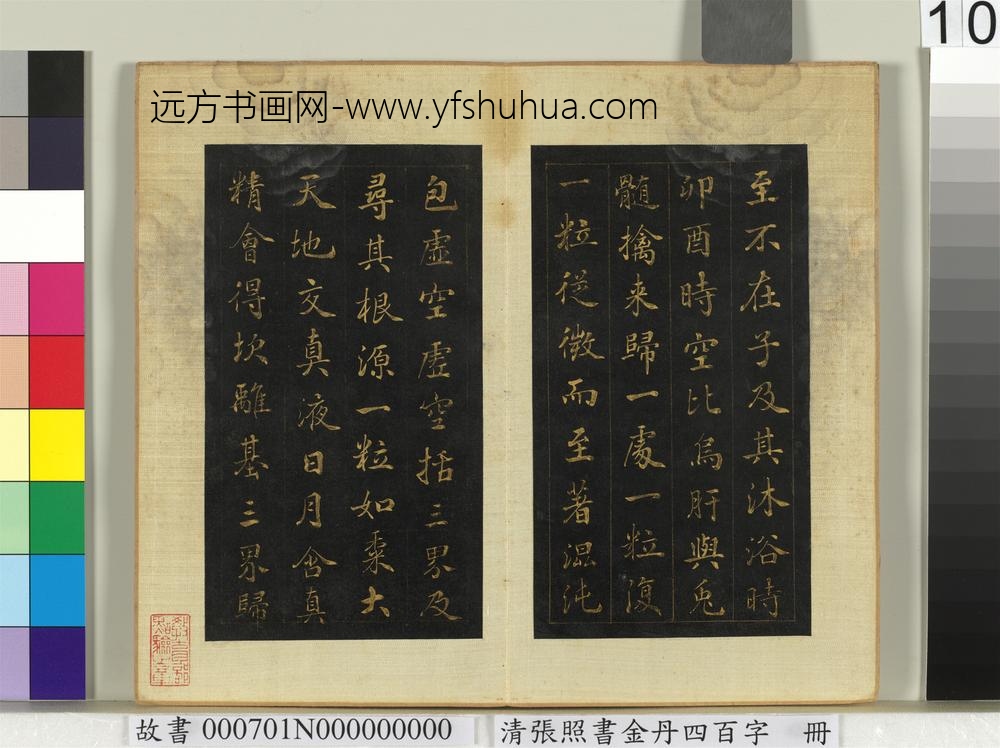 10
远方书画网-www.yfshuhua.com
至不在子及其沐浴時
卯酉時空比烏肝與兎
髓擒来歸一處一粒復
一粒從微而至著混沌
包虛空虛空括三界及
尋其根源一粒如黍大
天地交真液日月含真
精會得坎離基三界歸
故書 000701N000000000
清張照書金丹四百字 冊